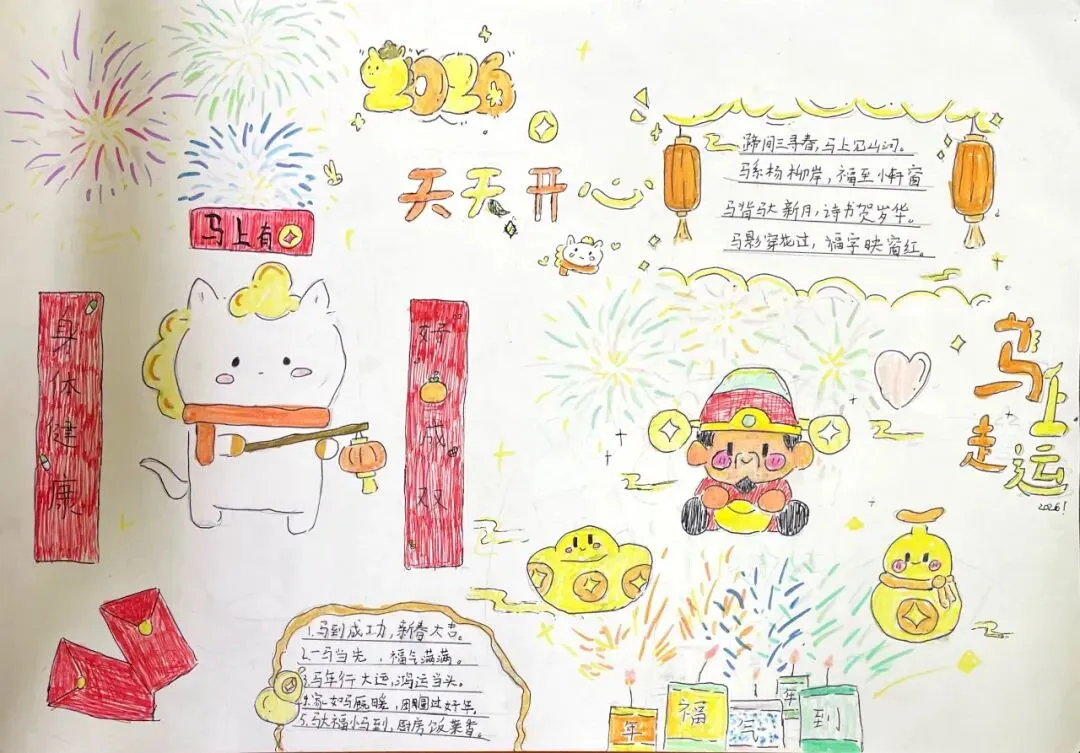 2026
天天开心
马上有
身体健康
好成双
蹄间三寻春，马上见山河。
马系杨柳岸，福至小轩窗
马背驮新月，诗书贺岁华。
马影穿花过，福字映窗红。
马上走运
2026！
1.马到成功，新春大吉。
2.一马当先，福气满满。
3.马年行大运，鸿运当头。
团圆过好年，
5.驮福小马到，厨房饭菜香。
年
福
气
年
到